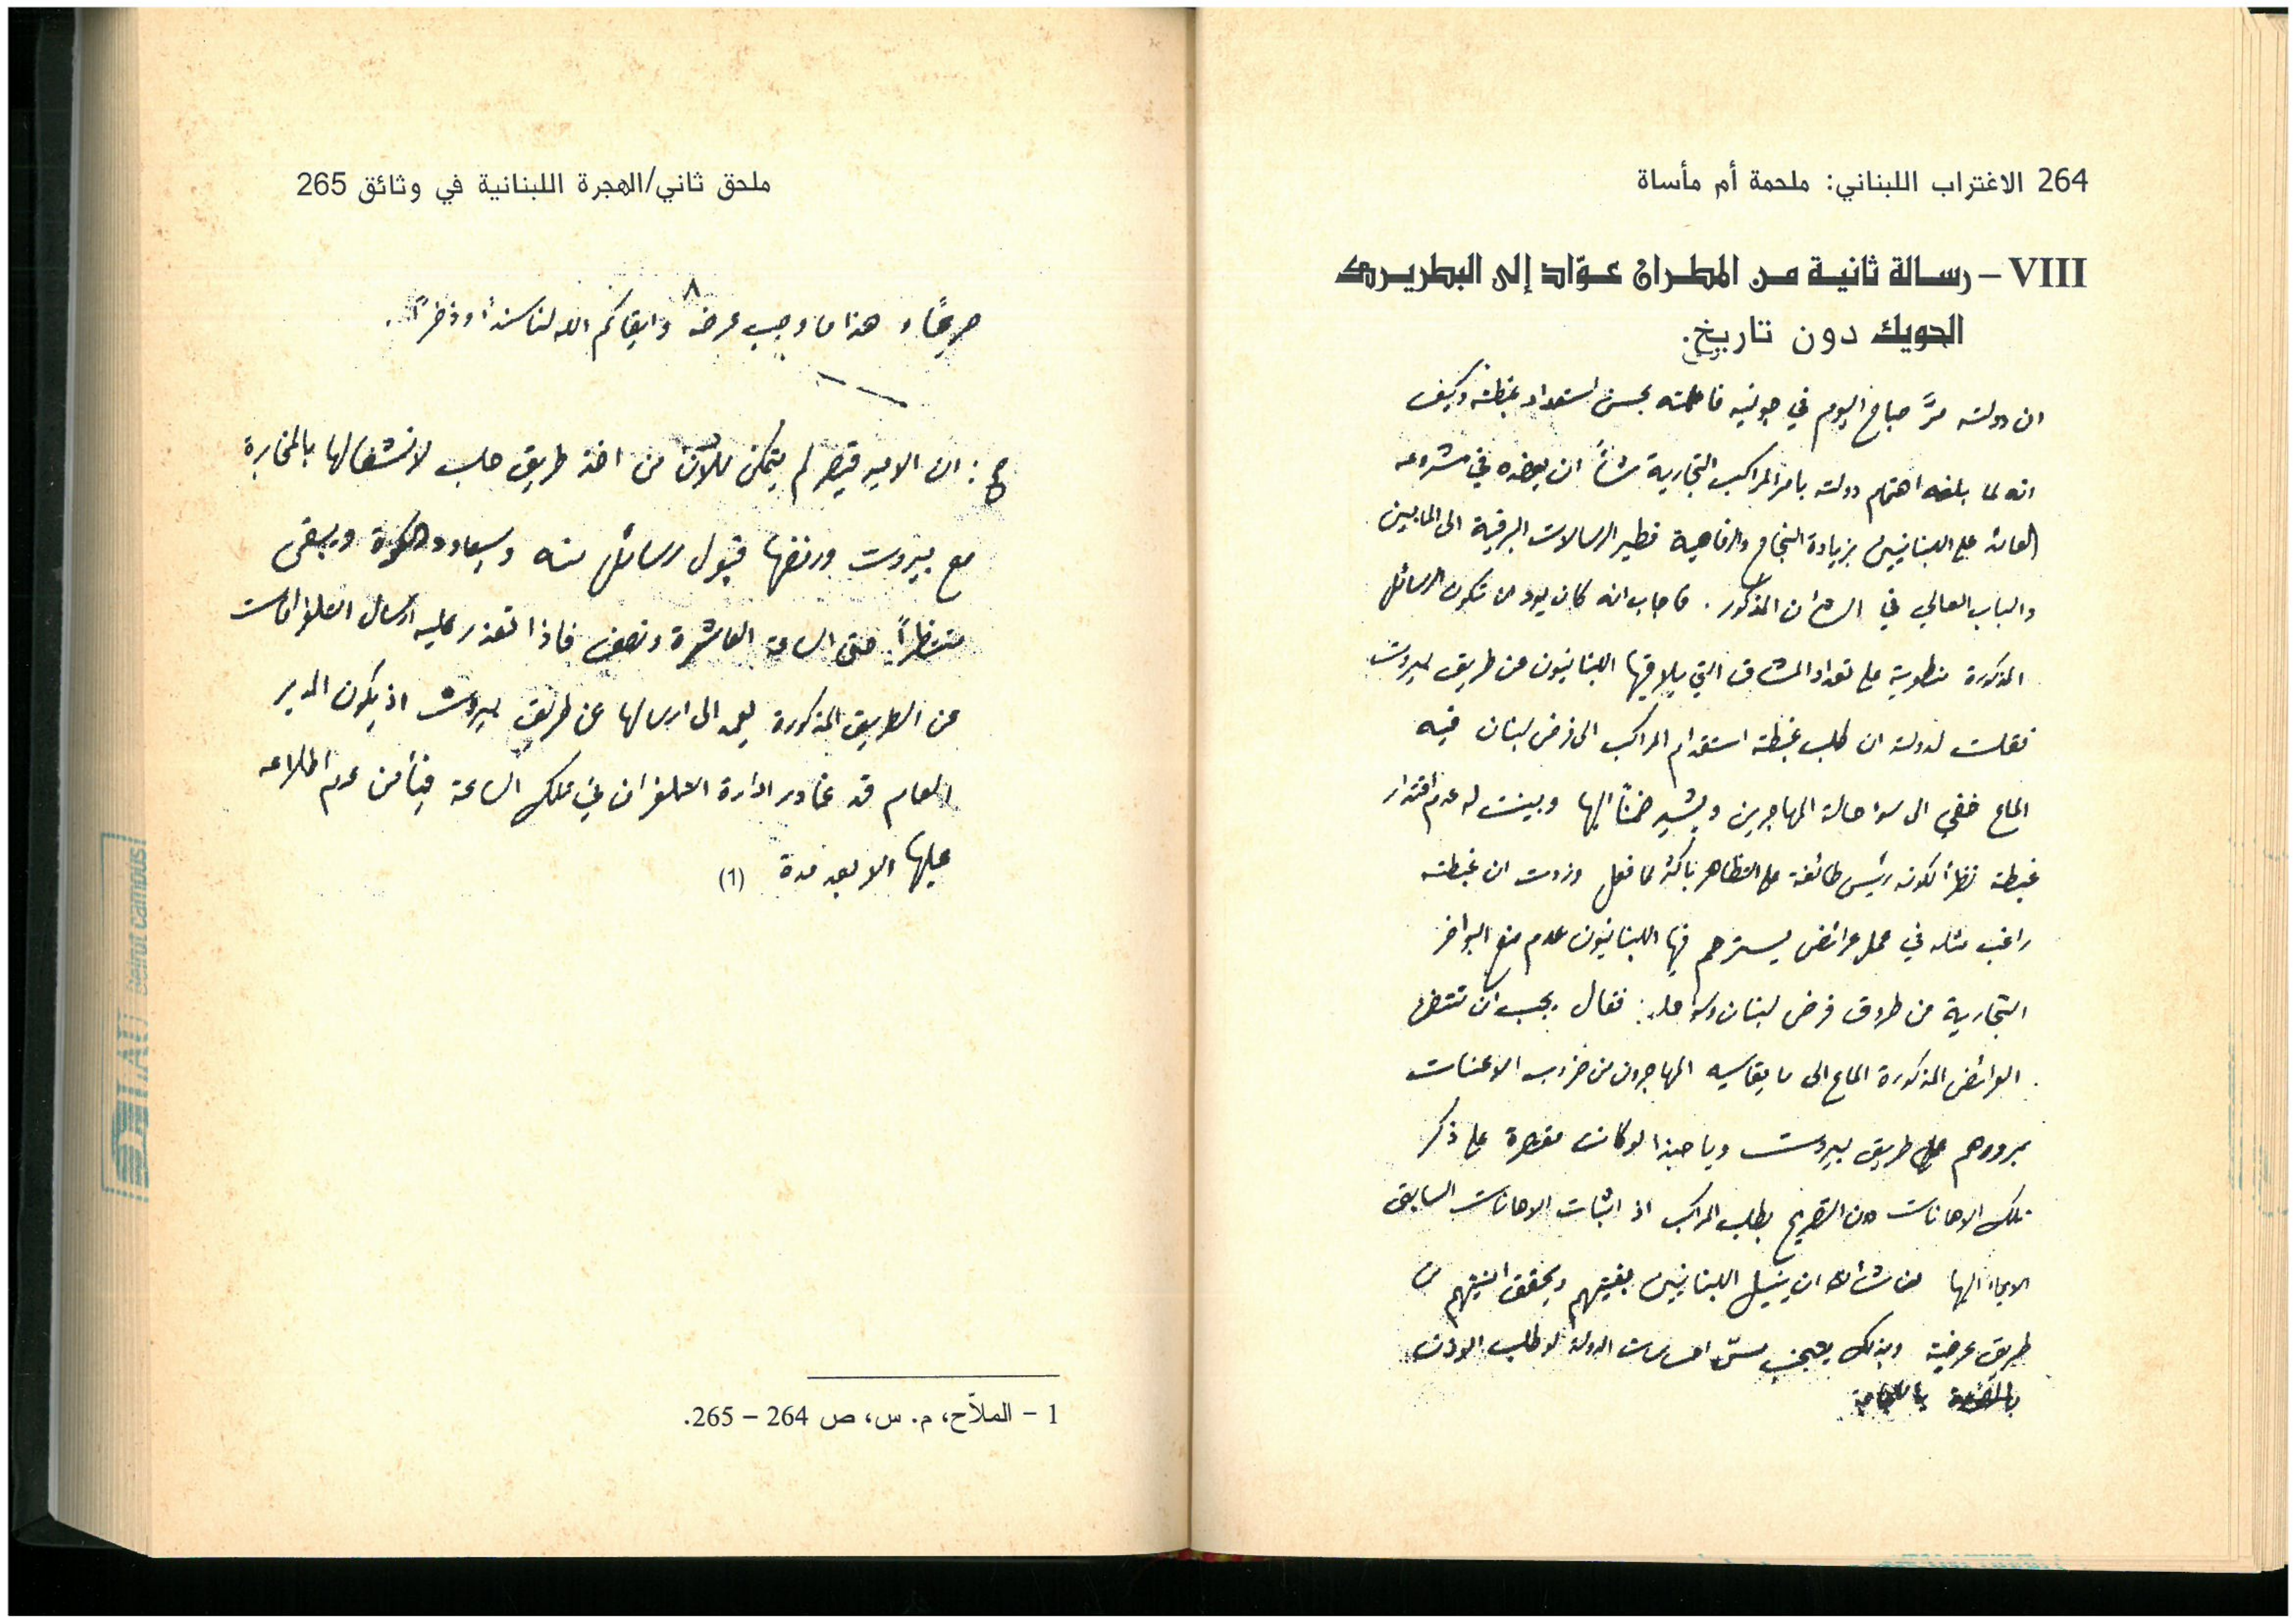 264 الاغتراب اللبناني: ملحمة أم مأساة
VIII – رسالة ثانية من المطران عوّاد إلى البطريرك
الحويك دون تاريخ.
ان دولته مرَّ صباح اليوم في جونيه فاعلمته بحسن استعداد غبطته وكيف
انه لما بلغه اهتمام دولته بامر المراكب التجارية شاءَ ان يعضده في مشروعه
العائد على اللبنانيين بزيادة النجاح والرفاهية فطير الرسالات البرقية الى المابين
والباب العالي في الشأن المذكور. فاجاب انه كان يود ان تكون الرسائل
المذكورة منطوية على تعداد المشاق التي يلاقيها اللبنانيون من طريق بيروت
فقلت لدولته ان طلب غبطته استقدام المراكب الى فرض لبنان فيه
الماع خفي الى سوء حالة المهاجرين ويشير ضمناً اليها وبينت له عدم اقتدار
غبطته نظراً لكونه رئيس طائفة على التظاهر باكثر مما فعل وزدت ان غبطته
راغب مثله في عمل عرائض يسترحم فيها اللبنانيون عدم منع البواخر
التجارية من طروق فرض لبنان وسواحله: فقال يجب ان تتضمن
العرائض المذكورة الماع الى ما يقاسيه المهاجرون من ضروب الاعنات
بمرورهم على طريق بيروت ويا حبذا لو كانت مقتصرة على ذكر
تلك الاهانات دون التصريح بطلب المراكب اذ اثبات الاهانات السابق
الايماء اليها من شأنه ان ينيل اللبنانيين بغيتهم ويحقق امنيتهم من
طريق عرضية وبذلك يتجنب مسّ احساسات الدولة لو طلب الاذن
ملحق ثاني/الهجرة اللبنانية في وثائق 265
٨
صريحًا، هذا ما وجب عرضه وابقاكم الله لنا سنداً وذخراً.
ح: ان الامير قيصر لم يتمكن للآن من اخذ طريق حلب لانشغالها بالمخابرة
مع بيروت ورفضها قبول رسائل منه وسيعاود الكرة ويبقى
منتظراً حتى الساعة العاشرة ونصف فاذا تعذر عليه ارسال التلغرافات
من الطريق المذكورة يعمد الى ارسالها عن طريق بيروت اذ يكون المدير
العام قد غادر ادارة التلغراف في تلك الساعة فيأمن عدم اطلاعه
عليها الا بعد مدة (1)
1 – الملاّح، م. س، ص 264 – 265.
LAU Beirut campus